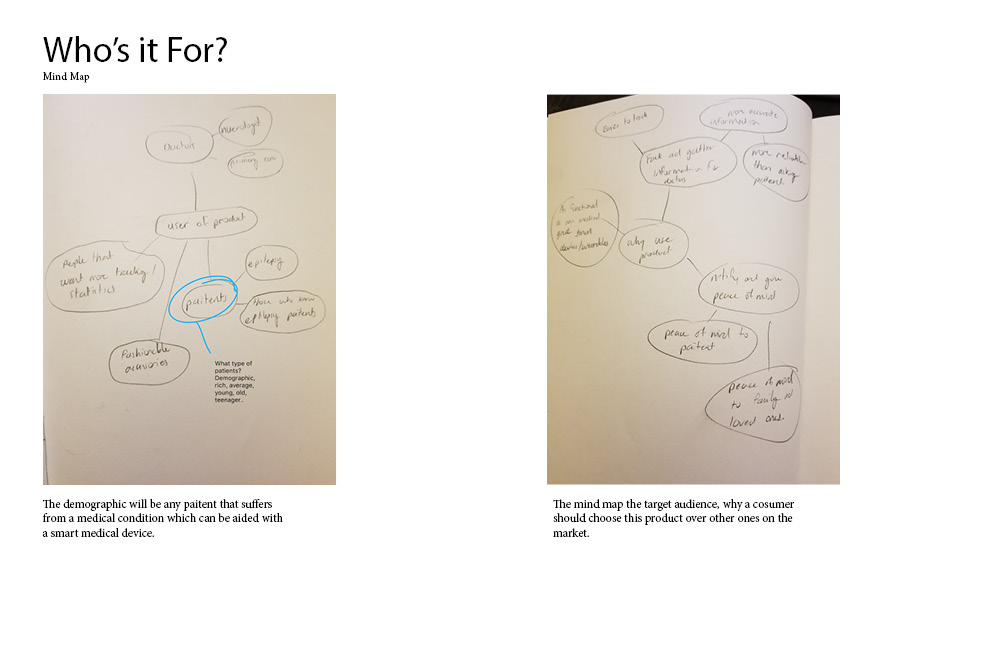 Who's it For?
Mind Map
nuerologist
doctors
primary care
user of product
People that
want more tracking /
statistics
epilepsy
paitents
those who know
epilepsy patients
Fashionable
acussories
What type of
patients?
Demographic,
rich, average,
young, old,
teenager..
The demographic will be any paitent that suffers
from a medical condition which can be aided with
a smart medical device.
Easier to track
more accurate
information
Track and gather
information for
doctors
more reliable
than asking
patient
As functional
as non medical
devices/wearables
why use
product
notify and give
peace of mind
peace of mind to
paitent
peace of mind
to family or
loved ones.
The mind map the target audience, why a cosumer
should choose this product over other ones on the
market.